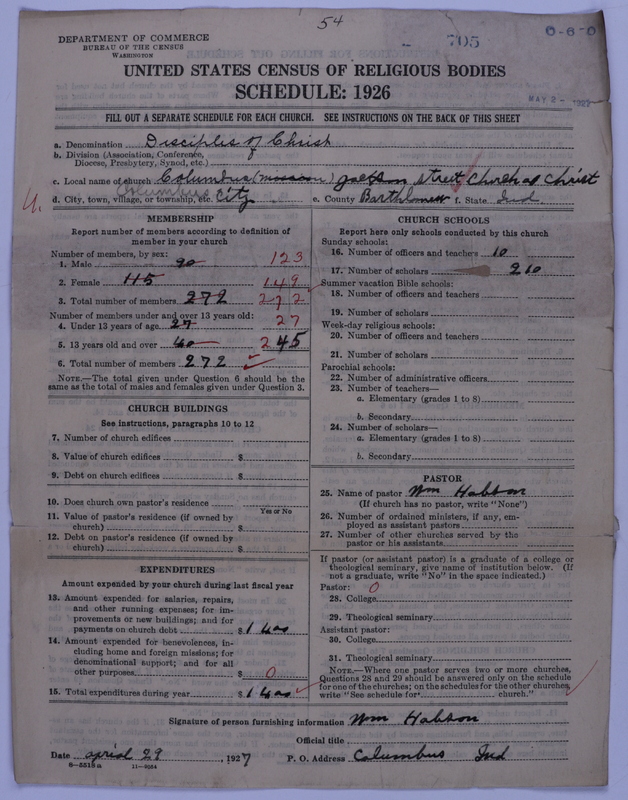 54
705
0-6-0
DEPARTMENT OF COMMERCE
BUREAU OF THE CENSUS
WASHINGTON
MAY 2 - 1927
UNITED STATES CENSUS OF RELIGIOUS BODIES
SCHEDULE: 1926
FILL OUT A SEPARATE SCHEDULE FOR EACH CHURCH. SEE INSTRUCTIONS ON THE BACK OF THIS SHEET
a. Denomination Disciples of Christ
b. Division (Association, Conference,
Diocese, Presbytery, Synod, etc.)
c. Local name of church Columbus Jackson street Church of Christ
d. City, town, village, or township, etc. Columbus City e. County Bartholomew f. State Ind
MEMBERSHIP
Report number of members according to definition of
member in your church
Number of members, by sex:
1. Male 90 123
2. Female 115 149
3. Total number of members 272 272
Number of members under and over 13 years old:
4. Under 13 years of age 27 27
5. 13 years old and over 40 245
6. Total number of members 272
NOTE.—The total given under Question 6 should be
same as the total of males and females given under Question 3.
CHURCH BUILDINGS
See instructions, paragraphs 10 to 12
7. Number of church edifices
8. Value of church edifices $
9. Debt on church edifices $
10. Does church own pastor's residence
Yes or No
11. Value of pastor's residence (if owned by
church) $
12. Debt on pastor's residence (if owned by
church) $
EXPENDITURES
Amount expended by your church during last fiscal year
13. Amount expended for salaries, repairs,
and other running expenses; for im-
provements or new buildings; and for
payments on church debt $1400
14. Amount expended for benevolences, in-
cluding home and foreign missions; for
denominational support; and for all
other purposes $ 0
15. Total expenditures during year $1400
CHURCH SCHOOLS
Report here only schools conducted by this church
Sunday schools:
16. Number of officers and teachers 10
17. Number of scholars 210
Summer vacation Bible schools:
18. Number of officers and teachers
19. Number of scholars
Week-day religious schools:
20. Number of officers and teachers
21. Number of scholars
Parochial schools:
22. Number of administrative officers
23. Number of teachers—
a. Elementary (grades 1 to 8)
b. Secondary
24. Number of scholars—
a. Elementary (grades 1 to 8)
b. Secondary
PASTOR
25. Name of pastor Wm Habson
(If church has no pastor, write "None")
26. Number of ordained ministers, if any, em-
ployed as assistant pastors
27. Number of other churches served by the
pastor or his assistants
If pastor (or assistant pastor) is a graduate of a college or
theological seminary, give name of institution below. (If
not a graduate, write "No" in the space indicated.)
Pastor: 0
28. College
29. Theological seminary
Assistant pastor:
30. College
31. Theological seminary
NOTE.—Where one pastor serves two or more churches,
Questions 28 and 29 should be answered only on the schedule
for one of the churches; on the schedules for the other churches
write "See schedule for church."
Signature of person furnishing information Wm Habson
Official title
Date april 29, 1927 P. O. Address Columbus Ind
8-5518a 11-9584